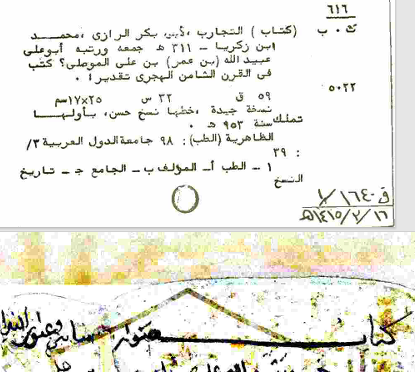 ٦١٦
ك ٠ ب (كتاب ) التجارب ،لأبى بكر الرازى ،محمــــد
ابن زكريا ــ ٣١١ ه جمعه ورتبه أبوعلى
عبيد الله (بن عمر) بن على الموصلى؟ كتب
فى القرن الثامن الهجرى تقديرا ٠
٥٠٢٢ ٥٩ ق ٣٢ س ٢٥×١٧سم
نسخة جيدة ،خطها نسخ حسن، بأولهــــا
تملك سنة ٩٥٣ هـ ٠
الظاهرية (الطب) : ٩٨ جامعةالدول العربية ٣/
: ٣٩
١ ــ الطب أــ المؤلف ب ــ الجامع جـ ــ تاريخ
النسخ
ق ١٦٤٠/١
١٤١٥/٢/١٦هـ
كتاب